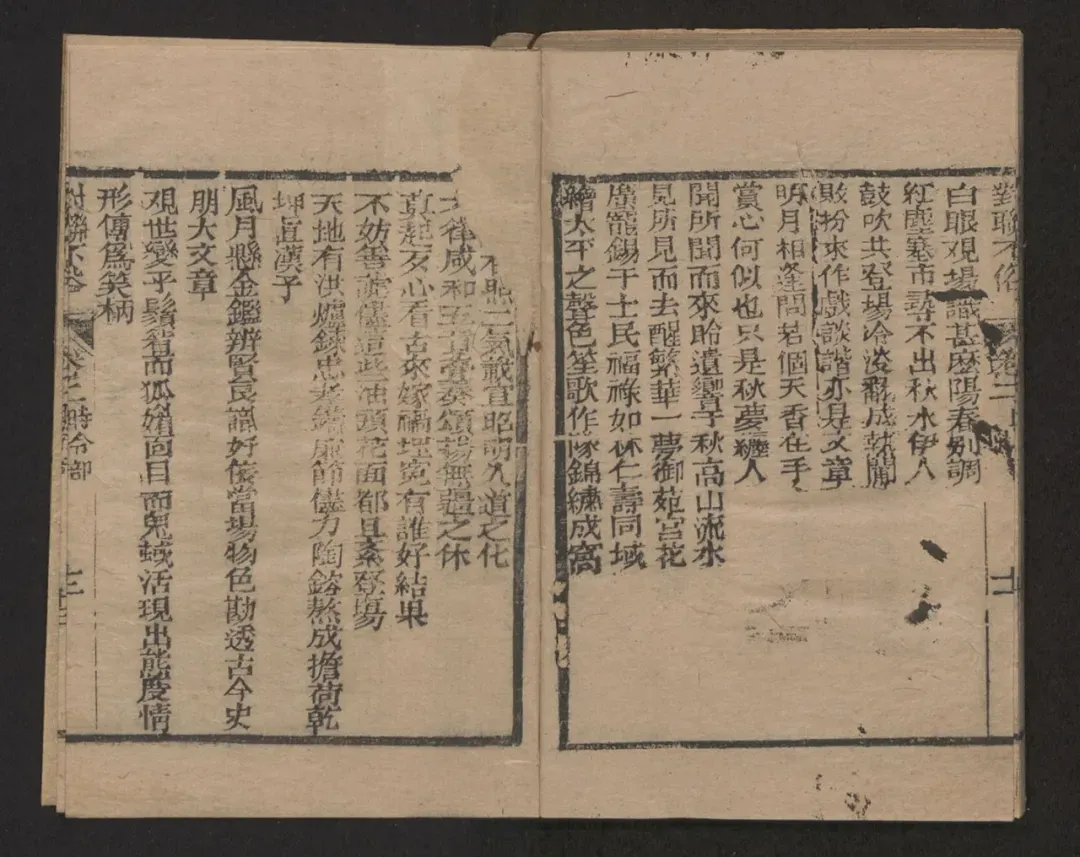 對聯不俗 卷二
白眼觀場識甚麽陽春別調
紅塵塞市尋不出秋水伊人
鼓吹共登場冷淡翻成熱鬧
敗粉來作戲談諧亦是文章
明月相逢問若個天香在手
賞心何似也只是秋夢纏人
聞所聞而來聆遺響于秋高山流水
見所見而去醒繁華一夢御苑宮花
廣寵錫于士民福祿如林仁壽同域
繪太平之聲色笙歌作隊錦繡成窩
二氣 宣昭萌入道之化
律咸和 奏頌揚無疆之休
真起歹心看古來嫁禍埋冤有誰好結果
不妨善 這些油頭花面都且紊登塲
天地有洪爐錄忠孝鑄廉節儘力陶鎔熬成擔荷乾
坤直漢子
風月懸金鑑辨賢良識好佞當場物色勘透古今史
朋大文章
观世變乎鬚眉而狐媚面目而鬼蜮活現出態度情
形傳爲笑柄
對聯不俗 卷之二 時令部 十二